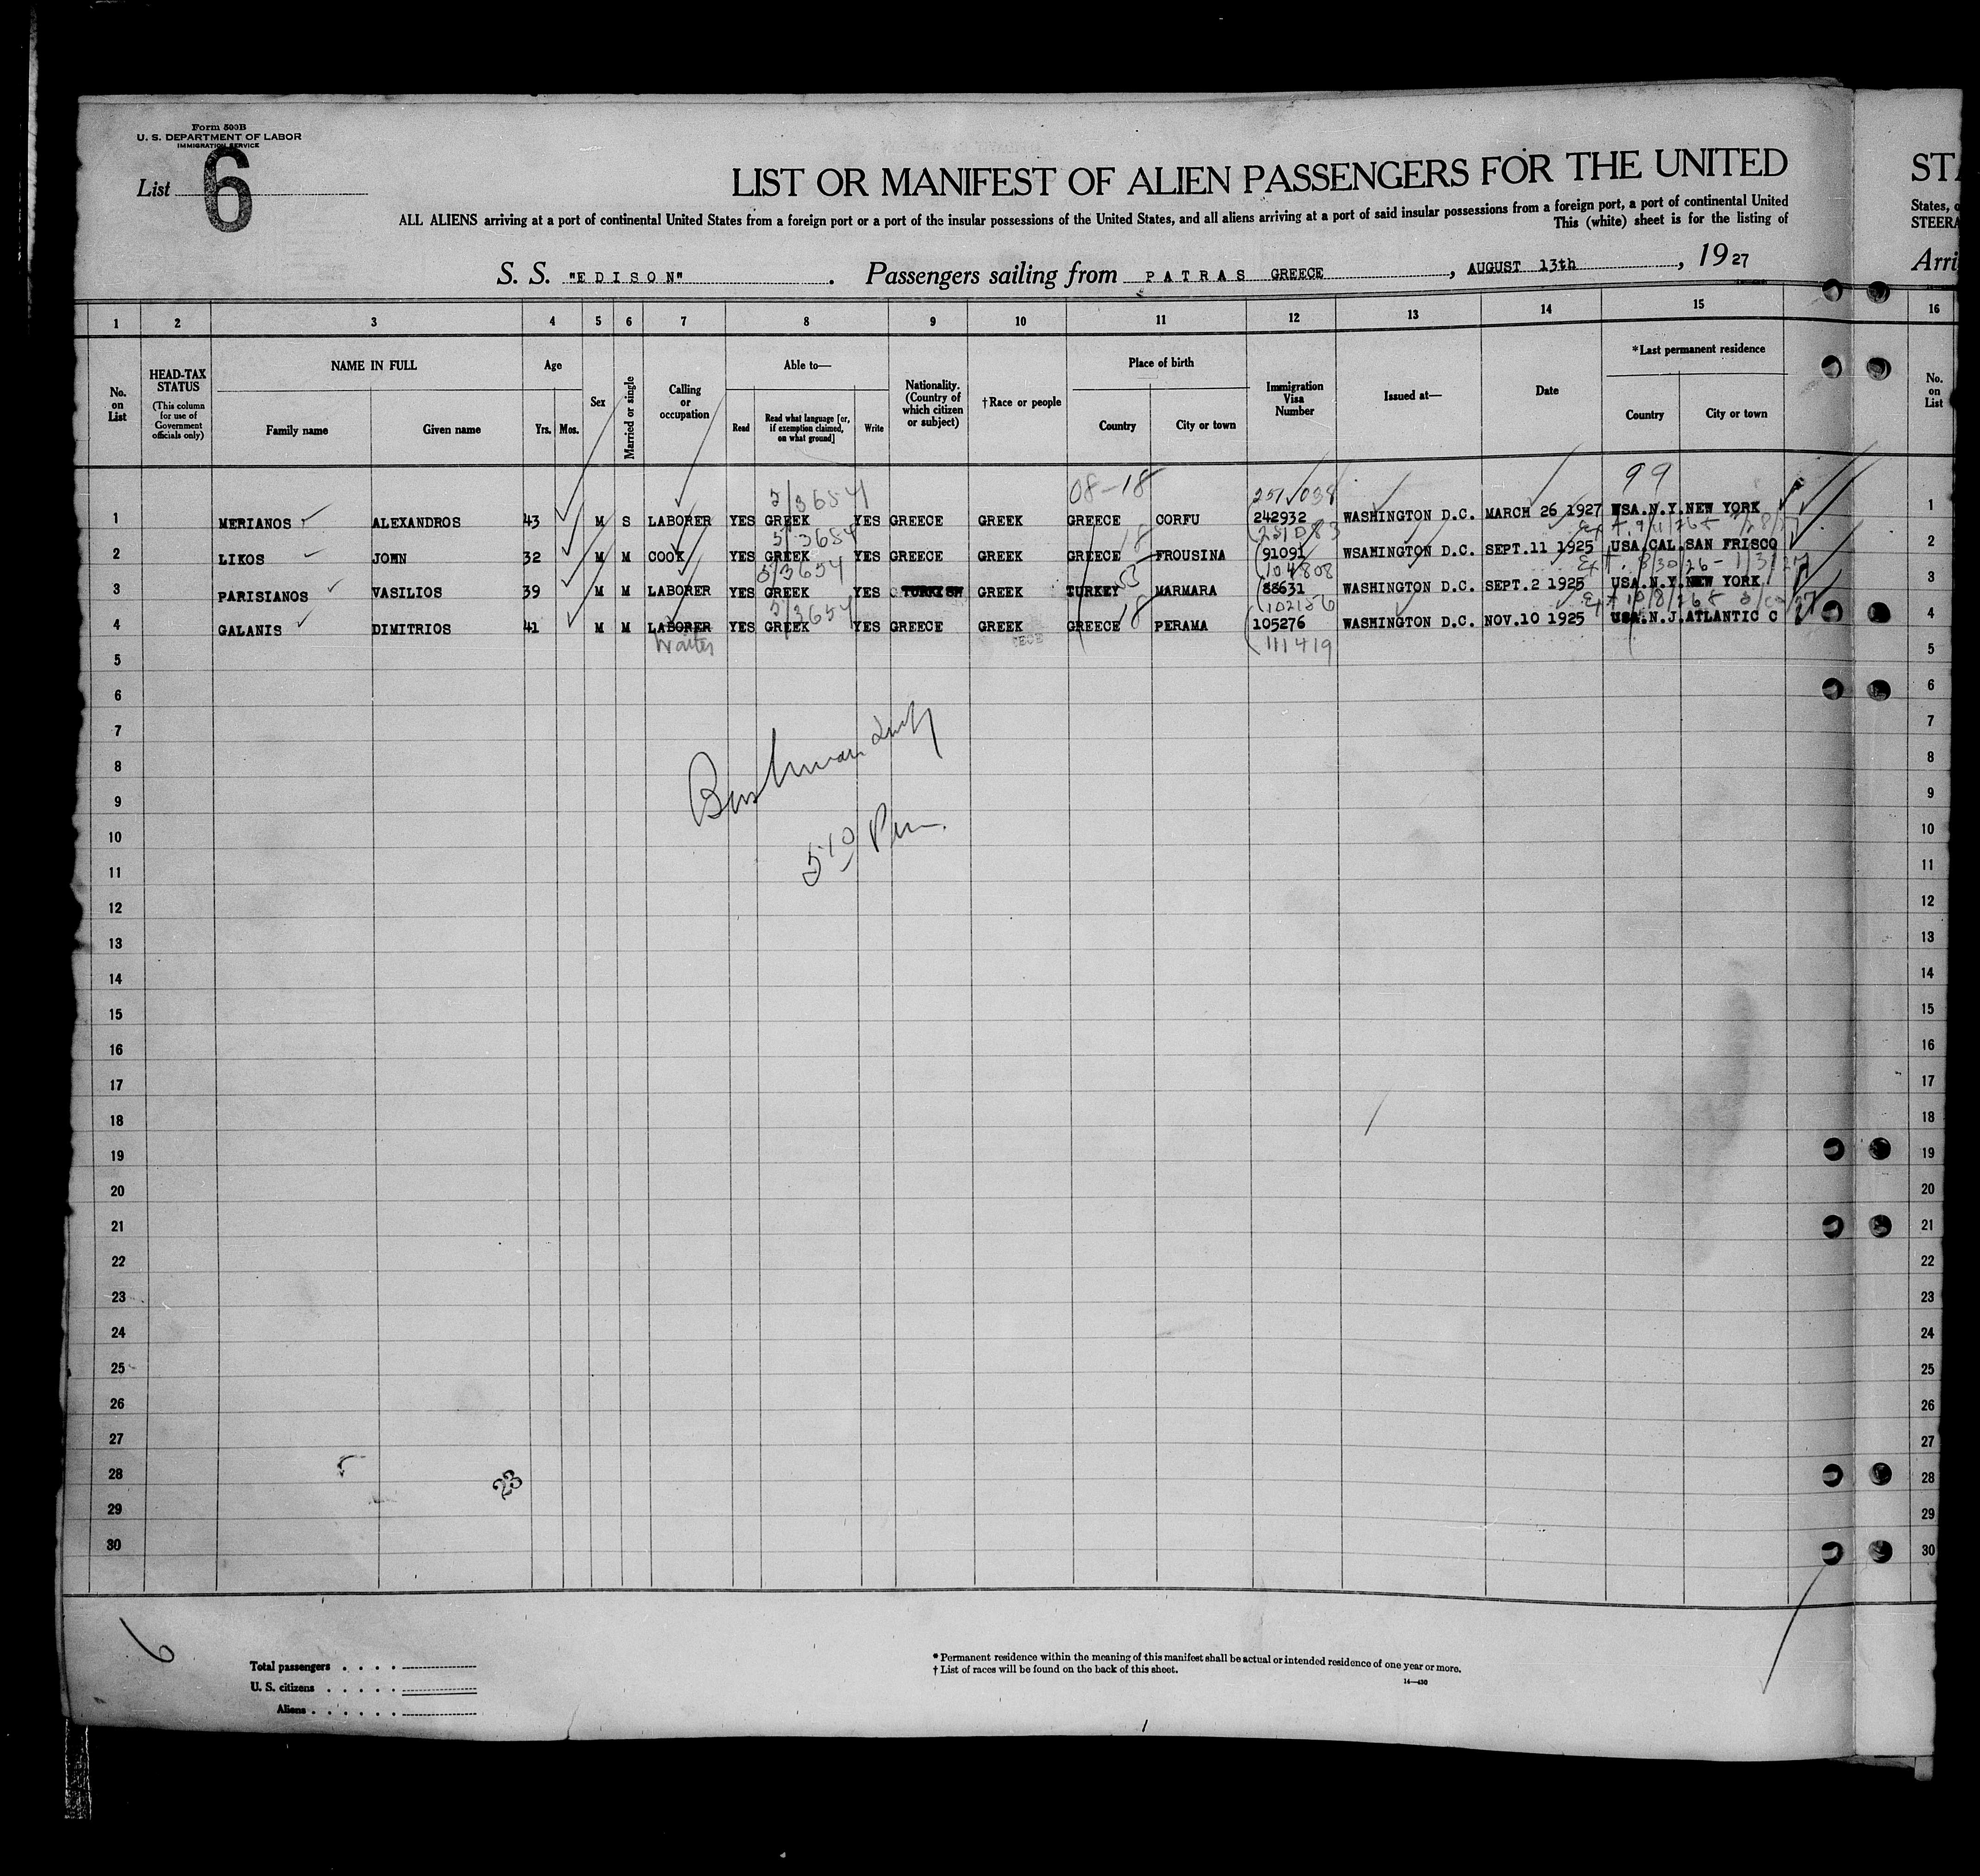 Form 500B
U. S. DEPARTMENT OF LABOR
IMMIGRATION SERVICE
List 6
LIST OR MANIFEST OF ALIEN PASSENGERS FOR THE UNITED
ALL ALIENS arriving at a port of continental United States from a foreign port or a port of the insular possessions of the United States, and all aliens arriving at a port of said insular possessions from a foreign port, a port of continental United
This (white) sheet is for the listing of
STA
States, o
STEERA
Arri
S. S. "EDISON". Passengers sailing from PATRAS GREECE, AUGUST 13th, 1927
1 2 3 4 5 6 7 8 9 10 11 12 13 14 15 16
No. on List
HEAD-TAX STATUS
(This column for use of Government officials only)
NAME IN FULL
Family name Given name
Age
Yrs. Mos.
Sex
Married or single
Calling or occupation
Able to—
Read Read what language [or, if exemption claimed, on what ground] Write
Nationality. (Country of which citizen or subject)
†Race or people
Place of birth
Country City or town
Immigration Visa Number
Issued at—
Date
*Last permanent residence
Country City or town
No. on List
5/3654 08-18 99
1 MERIANOS ALEXANDROS 43 M S LABORER YES GREEK YES GREECE GREEK GREECE CORFU 242932 WASHINGTON D.C. MARCH 26 1927 USA.N.Y.NEW YORK 1
5/3654 18 251083
2 LIKOS JOHN 32 M M COOK YES GREEK YES GREECE GREEK GREECE FROUSINA 91091 WSAHINGTON D.C. SEPT.11 1925 USA.CAL.SAN FRISCO 2
5/3654 104808 Ext. 8/30/26 - 1/3/27
3 PARISIANOS VASILIOS 39 M M LABORER YES GREEK YES TURKISH GREEK TURKEY MARMARA 88631 WASHINGTON D.C. SEPT.2 1925 USA.N.Y.NEW YORK. 3
5/3654 18 102156
4 GALANIS DIMITRIOS 41 M M LABORER YES GREEK YES GREECE GREEK GREECE PERAMA 105276 WASHINGTON D.C. NOV.10 1925 USA.N.J.ATLANTIC C 4
Waiter 111419
5 5
6 6
7 7
8 8
9 9
5 10 Pm
10 10
11 11
12 12
13 13
14 14
15 15
16 16
17 17
18 18
19 19
20 20
21 21
22 22
23 23
24 24
25 25
26 26
27 27
28 28
23
29 29
30 30
6
Total passengers
U. S. citizens
Aliens
* Permanent residence within the meaning of this manifest shall be actual or intended residence of one year or more.
† List of races will be found on the back of this sheet.
14—430